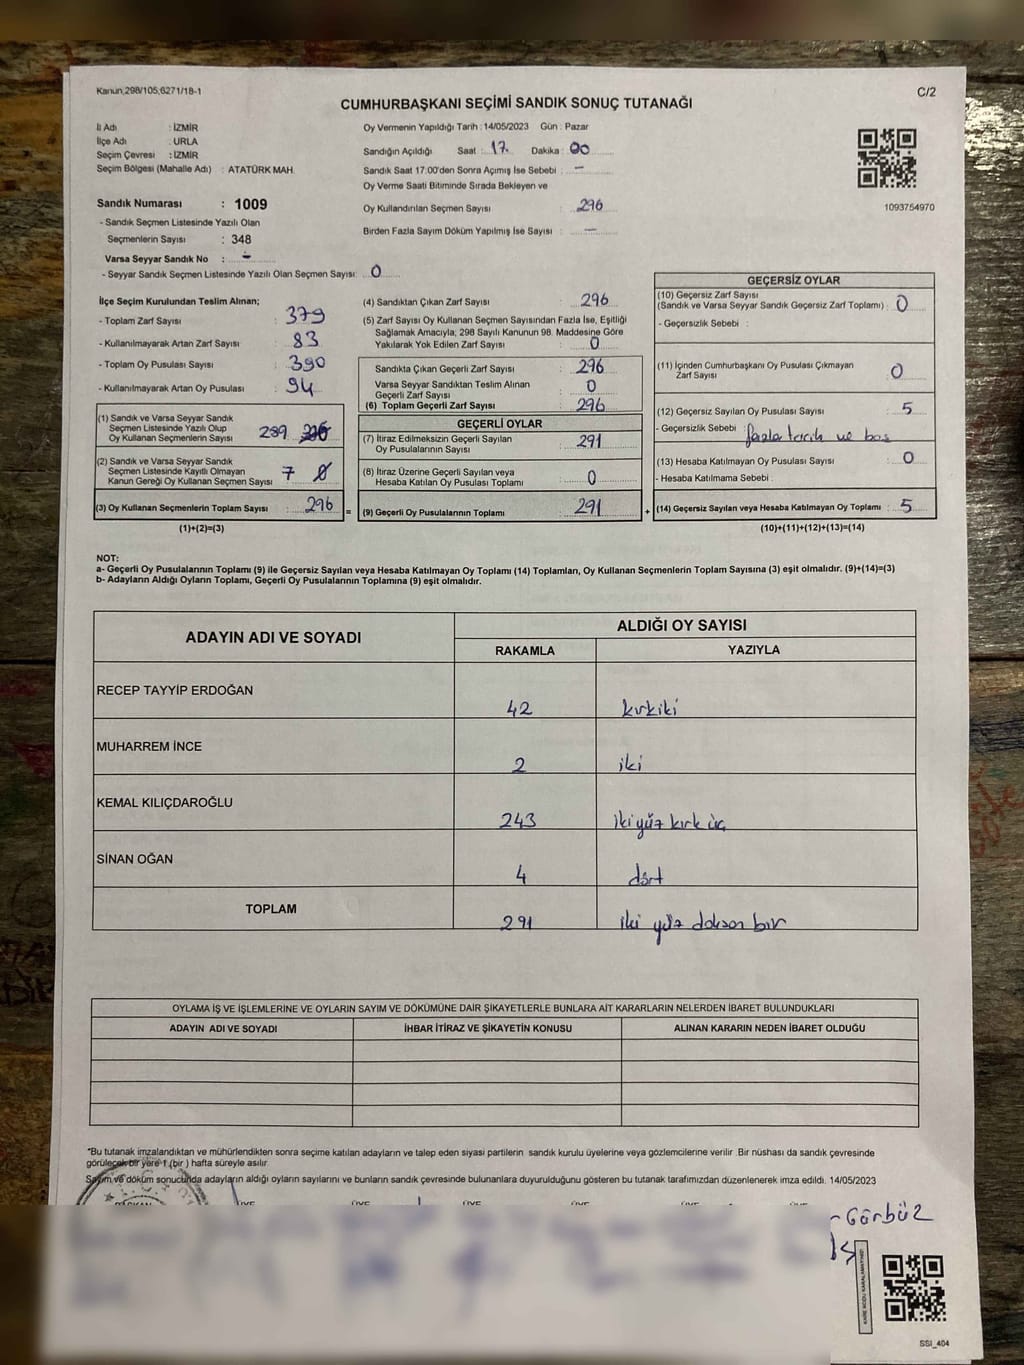 Kanun,298/105,6271/18-1
C/2
CUMHURBAŞKANI SEÇİMİ SANDIK SONUÇ TUTANAĞI
İl Adı : İZMİR
İlçe Adı : URLA
Seçim Çevresi : İZMİR
Seçim Bölgesi (Mahalle Adı) : ATATÜRK MAH.
Sandık Numarası : 1009
- Sandık Seçmen Listesinde Yazılı Olan
Seçmenlerin Sayısı : 348
Varsa Seyyar Sandık No : -
- Seyyar Sandık Seçmen Listesinde Yazılı Olan Seçmen Sayısı: 0
Oy Vermenin Yapıldığı Tarih : 14/05/2023 Gün : Pazar
Sandığın Açıldığı Saat : 17 Dakika : 00
Sandık Saat 17.00'den Sonra Açımış İse Sebebi : -
Oy Verme Saati Bitiminde Sırada Bekleyen ve
Oy Kullandırılan Seçmen Sayısı : 296
Birden Fazla Sayım Döküm Yapılmış İse Sayısı : -
1093754970
İlçe Seçim Kurulundan Teslim Alınan;
- Toplam Zarf Sayısı : 379
- Kullanılmayarak Artan Zarf Sayısı : 83
- Toplam Oy Pusulası Sayısı : 390
- Kullanılmayarak Artan Oy Pusulası : 94
(1) Sandık ve Varsa Seyyar Sandık
Seçmen Listesinde Yazılı Olup
Oy Kullanan Seçmenlerin Sayısı : 289
(2) Sandık ve Varsa Seyyar Sandık
Seçmen Listesinde Kayıtlı Olmayan
Kanun Gereği Oy Kullanan Seçmen Sayısı : 7
(3) Oy Kullanan Seçmenlerin Toplam Sayısı : 296
(1)+(2)=(3)
=
(4) Sandıktan Çıkan Zarf Sayısı : 296
(5) Zarf Sayısı Oy Kullanan Seçmen Sayısından Fazla İse, Eşitliği
Sağlamak Amacıyla, 298 Sayılı Kanunun 98. Maddesine Göre
Yakılarak Yok Edilen Zarf Sayısı : 0
Sandıkta Çıkan Geçerli Zarf Sayısı : 296
Varsa Seyyar Sandıktan Teslim Alınan
Geçerli Zarf Sayısı : 0
(6) Toplam Geçerli Zarf Sayısı : 296
GEÇERLİ OYLAR
(7) İtiraz Edilmeksizin Geçerli Sayılan
Oy Pusulalarının Sayısı : 291
(8) İtiraz Üzerine Geçerli Sayılan veya
Hesaba Katılan Oy Pusulası Toplamı : 0
(9) Geçerli Oy Pusulalarının Toplamı : 291
+
GEÇERSİZ OYLAR
(10) Geçersiz Zarf Sayısı
(Sandık ve Varsa Seyyar Sandık Geçersiz Zarf Toplamı) : 0
- Geçersizlik Sebebi :
(11) İçinden Cumhurbaşkanı Oy Pusulası Çıkmayan
Zarf Sayısı : 0
(12) Geçersiz Sayılan Oy Pusulası Sayısı : 5
- Geçersizlik Sebebi : fazla tercih ve boş
(13) Hesaba Katılmayan Oy Pusulası Sayısı : 0
- Hesaba Katılmama Sebebi :
(14) Geçersiz Sayılan veya Hesaba Katılmayan Oy Toplamı : 5
(10)+(11)+(12)+(13)=(14)
NOT:
a- Geçerli Oy Pusulalarının Toplamı (9) ile Geçersiz Sayılan veya Hesaba Katılmayan Oy Toplamı (14) Toplamları, Oy Kullanan Seçmenlerin Toplam Sayısına (3) eşit olmalıdır. (9)+(14)=(3)
b- Adayların Aldığı Oyların Toplamı, Geçerli Oy Pusulalarının Toplamına (9) eşit olmalıdır.
ADAYIN ADI VE SOYADI
ALDIĞI OY SAYISI
RAKAMLA YAZIYLA
RECEP TAYYİP ERDOĞAN 42 kırkiki
MUHARREM İNCE 2 iki
KEMAL KILIÇDAROĞLU 243 ikiyüz kırk üç
SİNAN OĞAN 4 dört
TOPLAM 291 iki yüz doksan bir
OYLAMA İŞ VE İŞLEMLERİNE VE OYLARIN SAYIM VE DÖKÜMÜNE DAİR ŞİKAYETLERLE BUNLARA AİT KARARLARIN NELERDEN İBARET BULUNDUKLARI
ADAYIN ADI VE SOYADI İHBAR İTİRAZ VE ŞİKAYETİN KONUSU ALINAN KARARIN NEDEN İBARET OLDUĞU
*Bu tutanak imzalandıktan ve mühürlendikten sonra seçime katılan adayların ve talep eden siyasi partilerin sandık kurulu üyelerine veya gözlemcilerine verilir. Bir nüshası da sandık çevresinde
görülecek bir yere 1 (bir) hafta süreyle asılır.
Sayım ve döküm sonucunda adayların aldığı oyların sayılarını ve bunların sandık çevresinde bulunanlara duyurulduğunu gösteren bu tutanak tarafımızdan düzenlenerek imza edildi. 14/05/2023
Gürbüz
SSİ_404